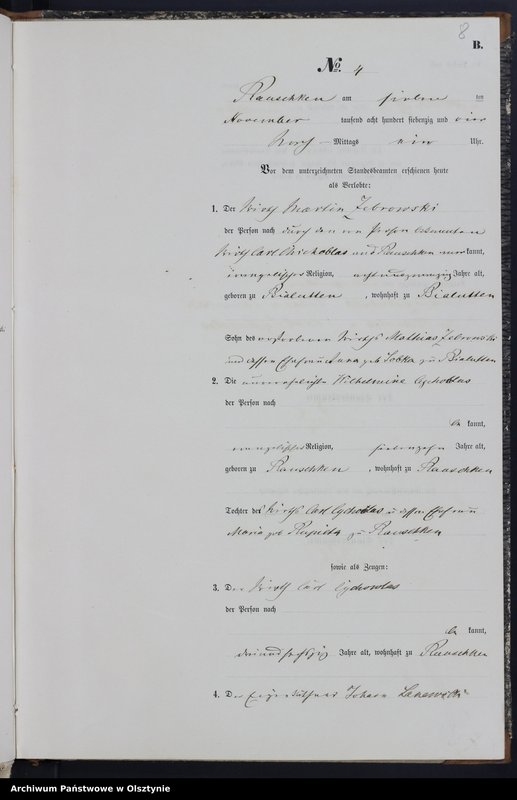 8
B.
No. 4
Rauschken am sieben ten
November tausend acht hundert siebenzig und vier
Nach Mittags ein Uhr.
Vor dem unterzeichneten Standesbeamten erschienen heute
als Verlobte:
1. Der Wirth Martin Zebrowski
der Person nach durch den von Person bekannten
Wirth Carl aus Rauschken kannt,
evangelischer Religion, achtundzwanzig Jahre alt,
geboren zu Bialutten, wohnhaft zu Bialutten
Sohn des verstorbenen Wirths Mathias Zebrowski
und dessen Ehefrau geb Sobka zu Bialutten
2. Die unverehelichte Wilhelmine
der Person nach
be kannt,
evangelischer Religion, siebenzehn Jahre alt,
geboren zu Rauschken, wohnhaft zu Rauschken
Tochter des Wirths Carl u dessen Ehefrau
Maria geb zu Rauschken
sowie als Zeugen:
3. Der Wirth Carl
der Person nach
be kannt,
dreiundsechszig Jahre alt, wohnhaft zu Rauschken
4. Der Johann
Archiwum Państwowe w Olsztynie